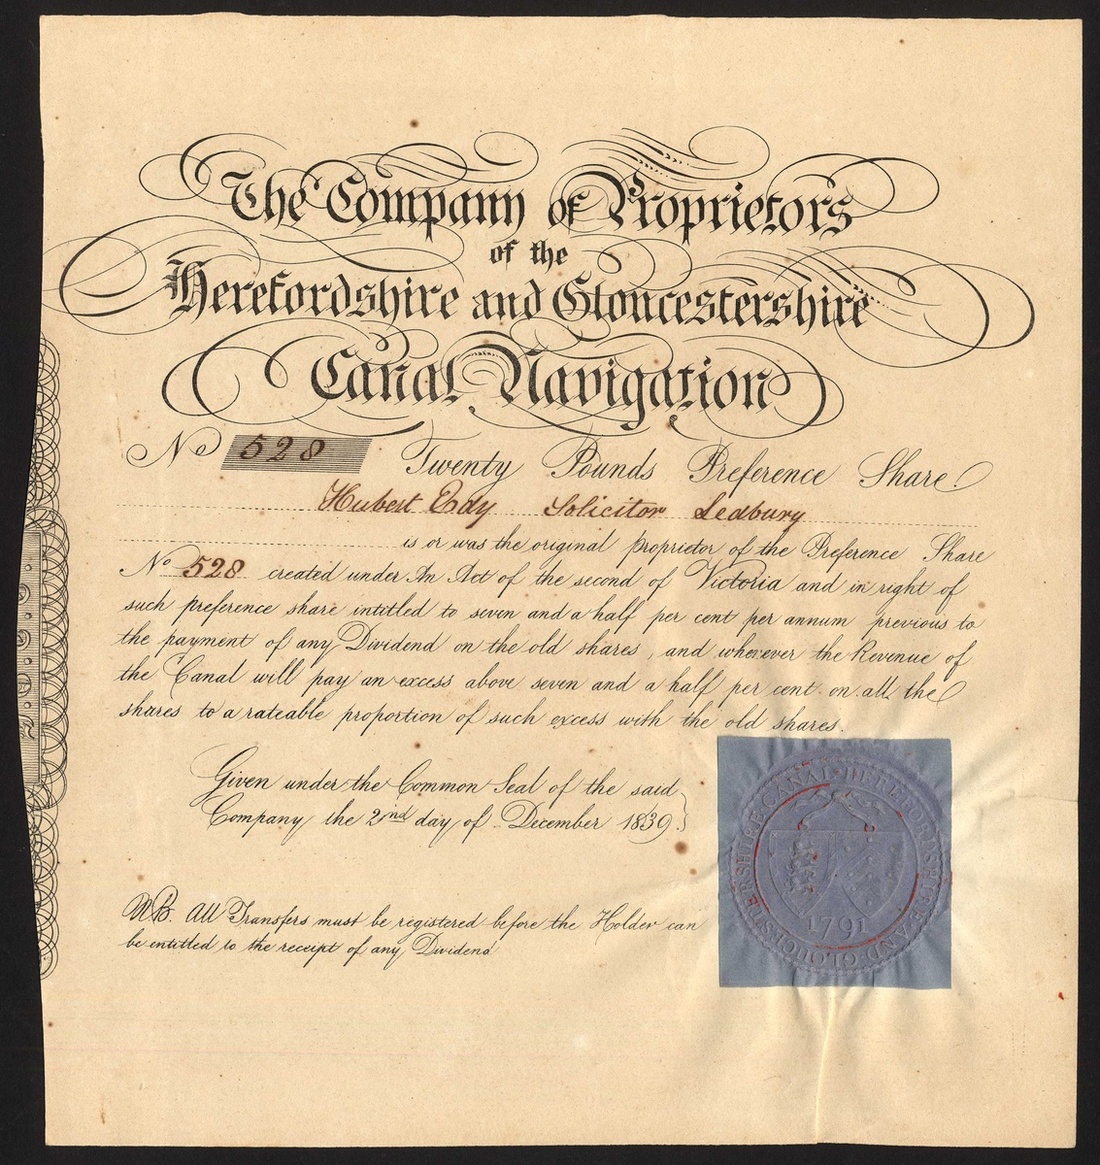 The Company of Proprietors
of the
Herefordshire and Gloucestershire
Canal Navigation
No 528 Twenty Pounds Preference Share.
Hubert Edy Solicitor Ledbury
is or was the original proprietor of the Preference Share
No 528 created under An Act of the second of Victoria and in right of
such preference share intitled to seven and a half per cent per annum previous to
the payment of any Dividend on the old shares, and wherever the Revenue of
the Canal will pay an excess above seven and a half per cent on all the
shares to a rateable proportion of such excess with the old shares.
Given under the Common Seal of the said
Company the 2nd day of December 1839.
NB. All Transfers must be registered before the Holder can
be intitled to the receipt of any Dividend
HEREFORDSHIRE AND GLOUCESTERSHIRE CANAL
1791